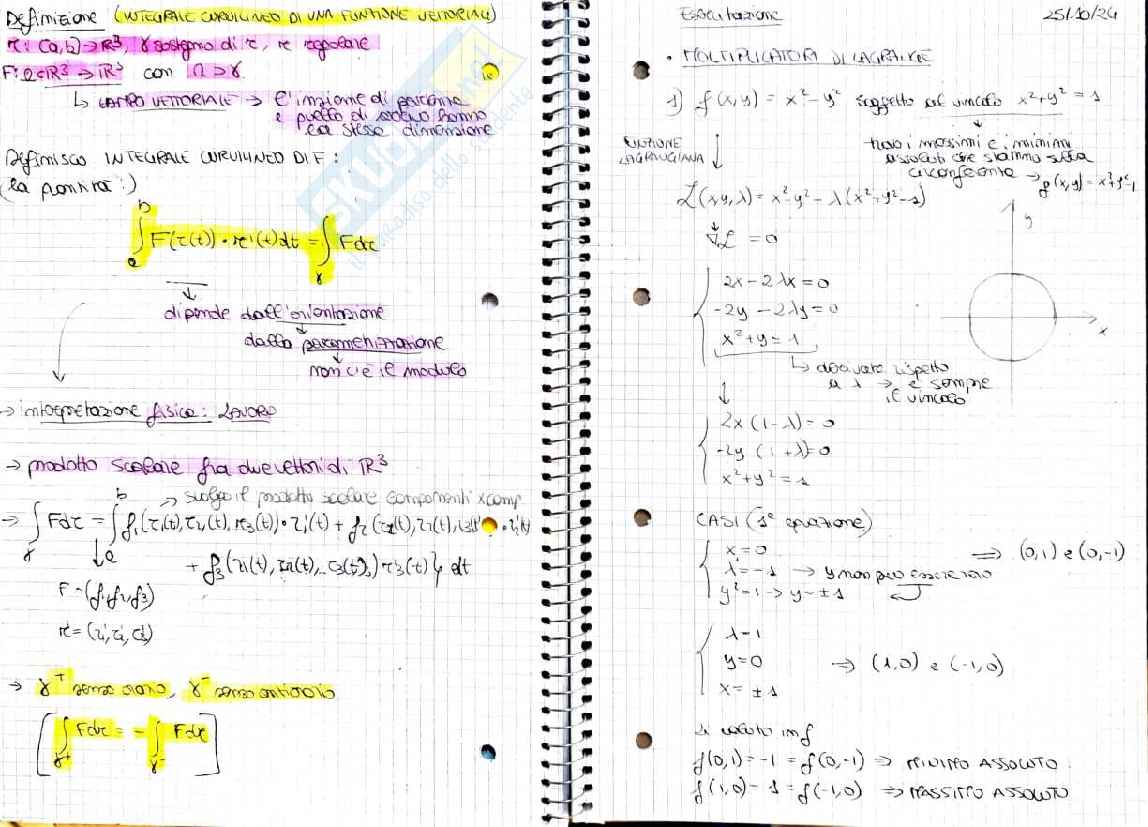 Definizione (INTEGRALE CURVILINEO DI UNA FUNZIONE VETTORIALE)
r: [a,b]→R³, γ sostegno di r, r regolare
F: Ω⊂R³→R³ con Ω⊃γ
↳ CAMPO VETTORIALE → l'insieme di partenza
e quello di arrivo hanno
la stessa dimensione
Definisco INTEGRALE CURVILINEO DI F:
∫_a^b F(r(t))·r'(t)dt = ∫_γ Fdr
dipende dall'orientazione
dalla parametrizzazione
non c'è il modulo
→ interpretazione fisica: LAVORO
→ prodotto scalare fra due vettori di R³
→ svolgo il prodotto scalare componenti x comp
→ ∫_γ Fdr = ∫_a^b f₁(r₁(t), r₂(t), r₃(t))·r₁'(t) + f₂(r₁(t), r₂(t), r₃(t))·r₂'(t)
+ f₃(r₁(t), r₂(t), r₃(t)) r₃'(t)} dt
F = (f₁,f₂,f₃)
r' = (r₁', r₂', r₃')
→ γ⁺ senso orario, γ⁻ senso antiorario
[∫_γ⁺ Fdr = - ∫_γ⁻ Fdr]
Esercitazione 25/10/24
• MOLTIPLICATORI DI LAGRANGE
1) f(x,y) = x²-y² soggetto al vincolo x²+y² = 1
FUNZIONE
LAGRANGIANA
trovo i massimi e i minimi
assoluti che stanno sulla
circonferenza → g(x,y) = x²+y²-1
L(x,y,λ) = x²-y² - λ(x²+y²-1)
∇L = 0
y
x
2x-2λx=0
-2y-2λy=0
x²+y=1
↳ derivata rispetto
a λ → è sempre
il vincolo
2x(1-λ)=0
-2y(1+λ)=0
x²+y²=1
CASI (1° equazione)
x=0
λ=-1 → y non può essere zero
y²=1 → y=±1
⇒ (0,1) e (0,-1)
λ=1
y=0
x=±1
⇒ (1,0) e (-1,0)
li valuto in f
f(0,1)=-1=f(0,-1) ⇒ MINIMO ASSOLUTO
f(1,0)=1=f(-1,0) ⇒ MASSIMO ASSOLUTO
SKUOLA
dello studente